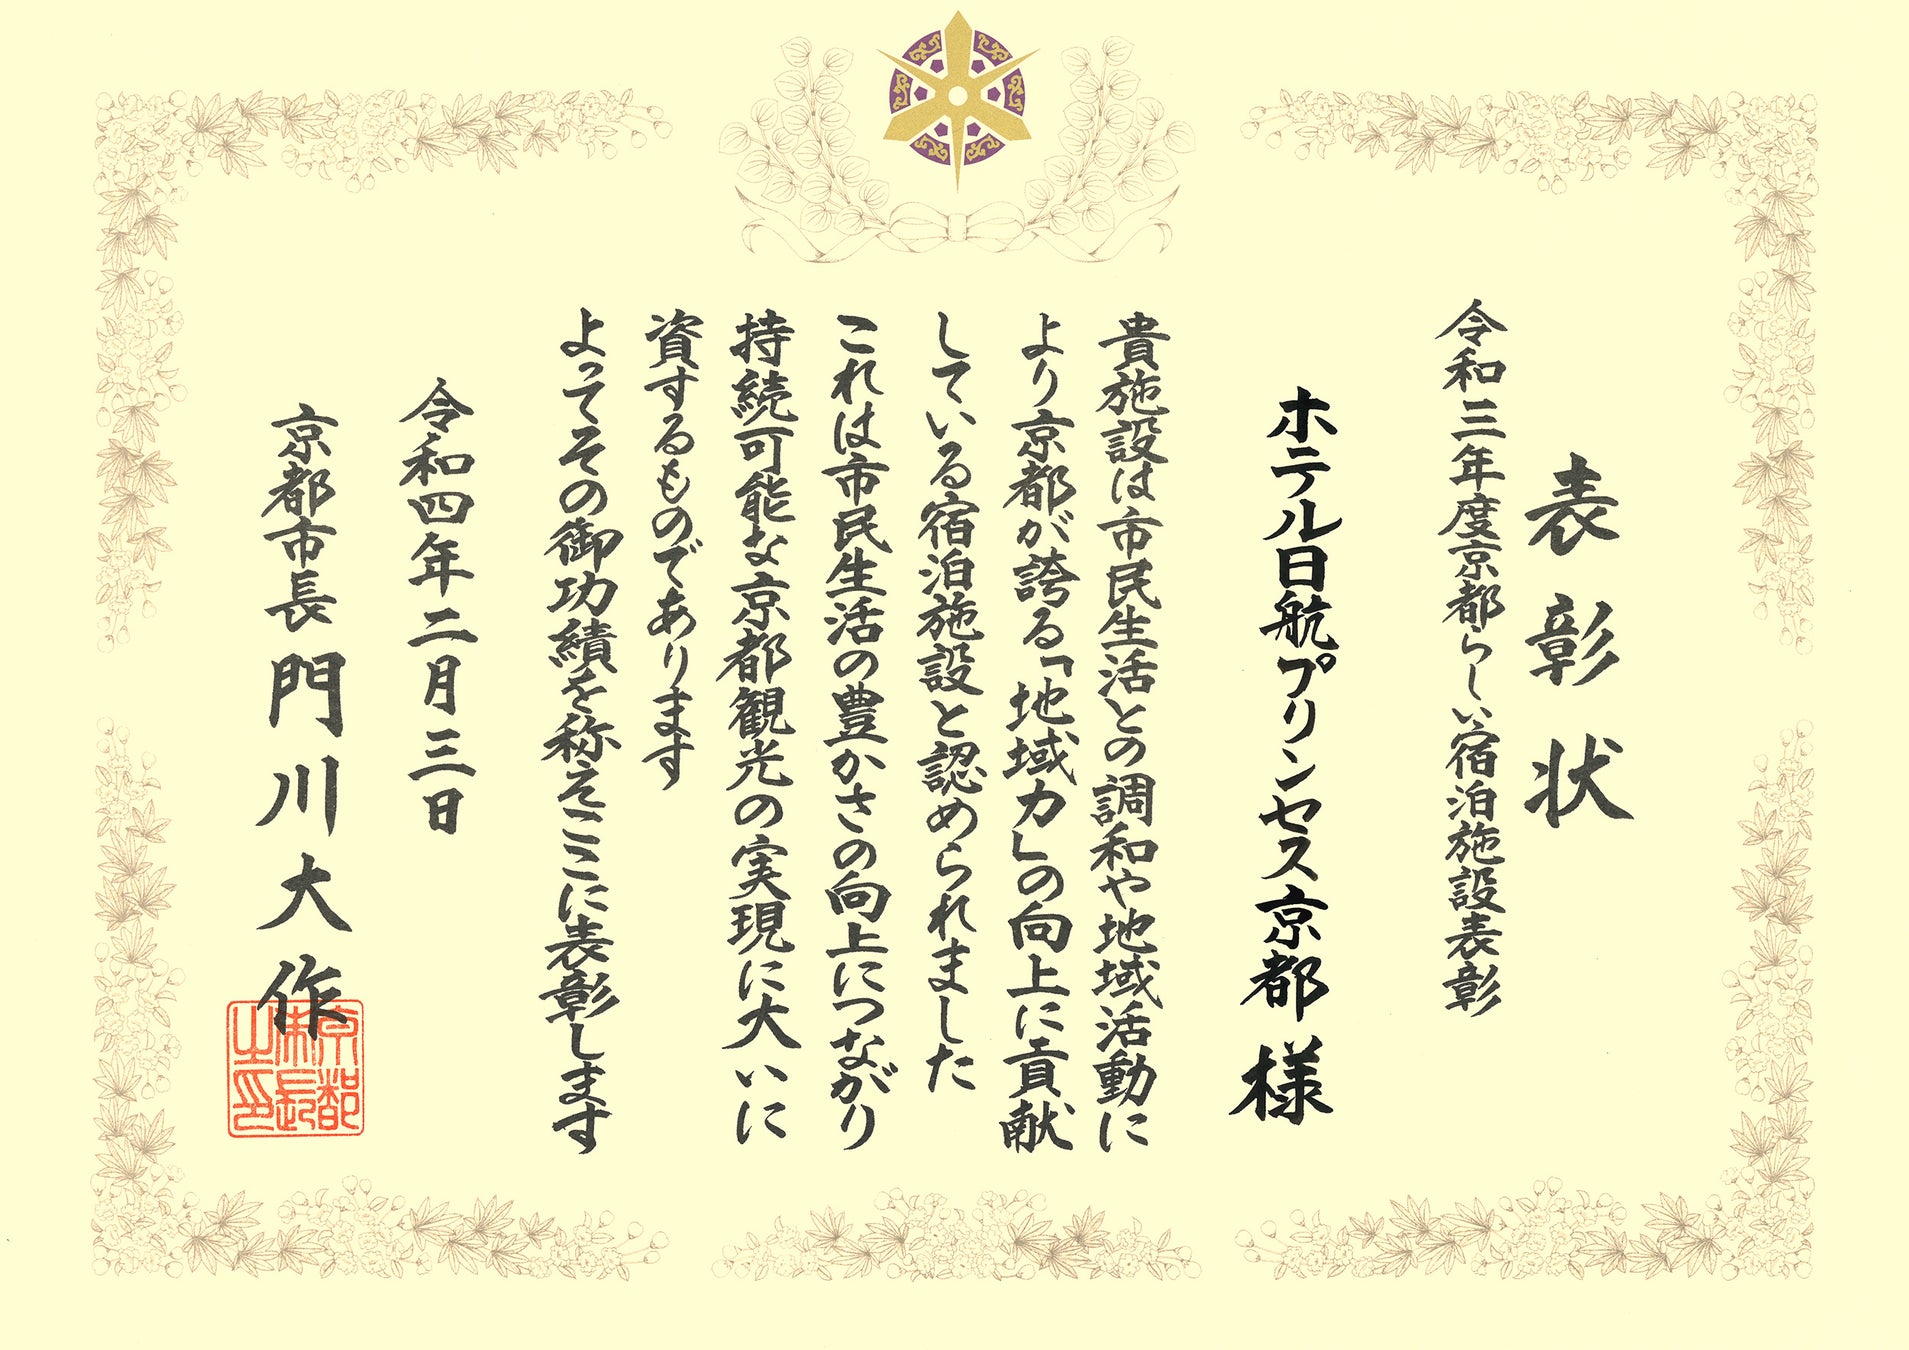 表彰状
令和三年度京都らしい宿泊施設表彰
ホテル日航プリンセス京都 様
貴施設は市民生活との調和や地域活動に
より京都が誇る「地域力」の向上に貢献
している宿泊施設と認められました
これは市民生活の豊かさの向上につながり
持続可能な京都観光の実現に大いに
資するものであります
よってその御功績を称えここに表彰します
令和四年二月三日
京都市長 門川大作
京都市長之印